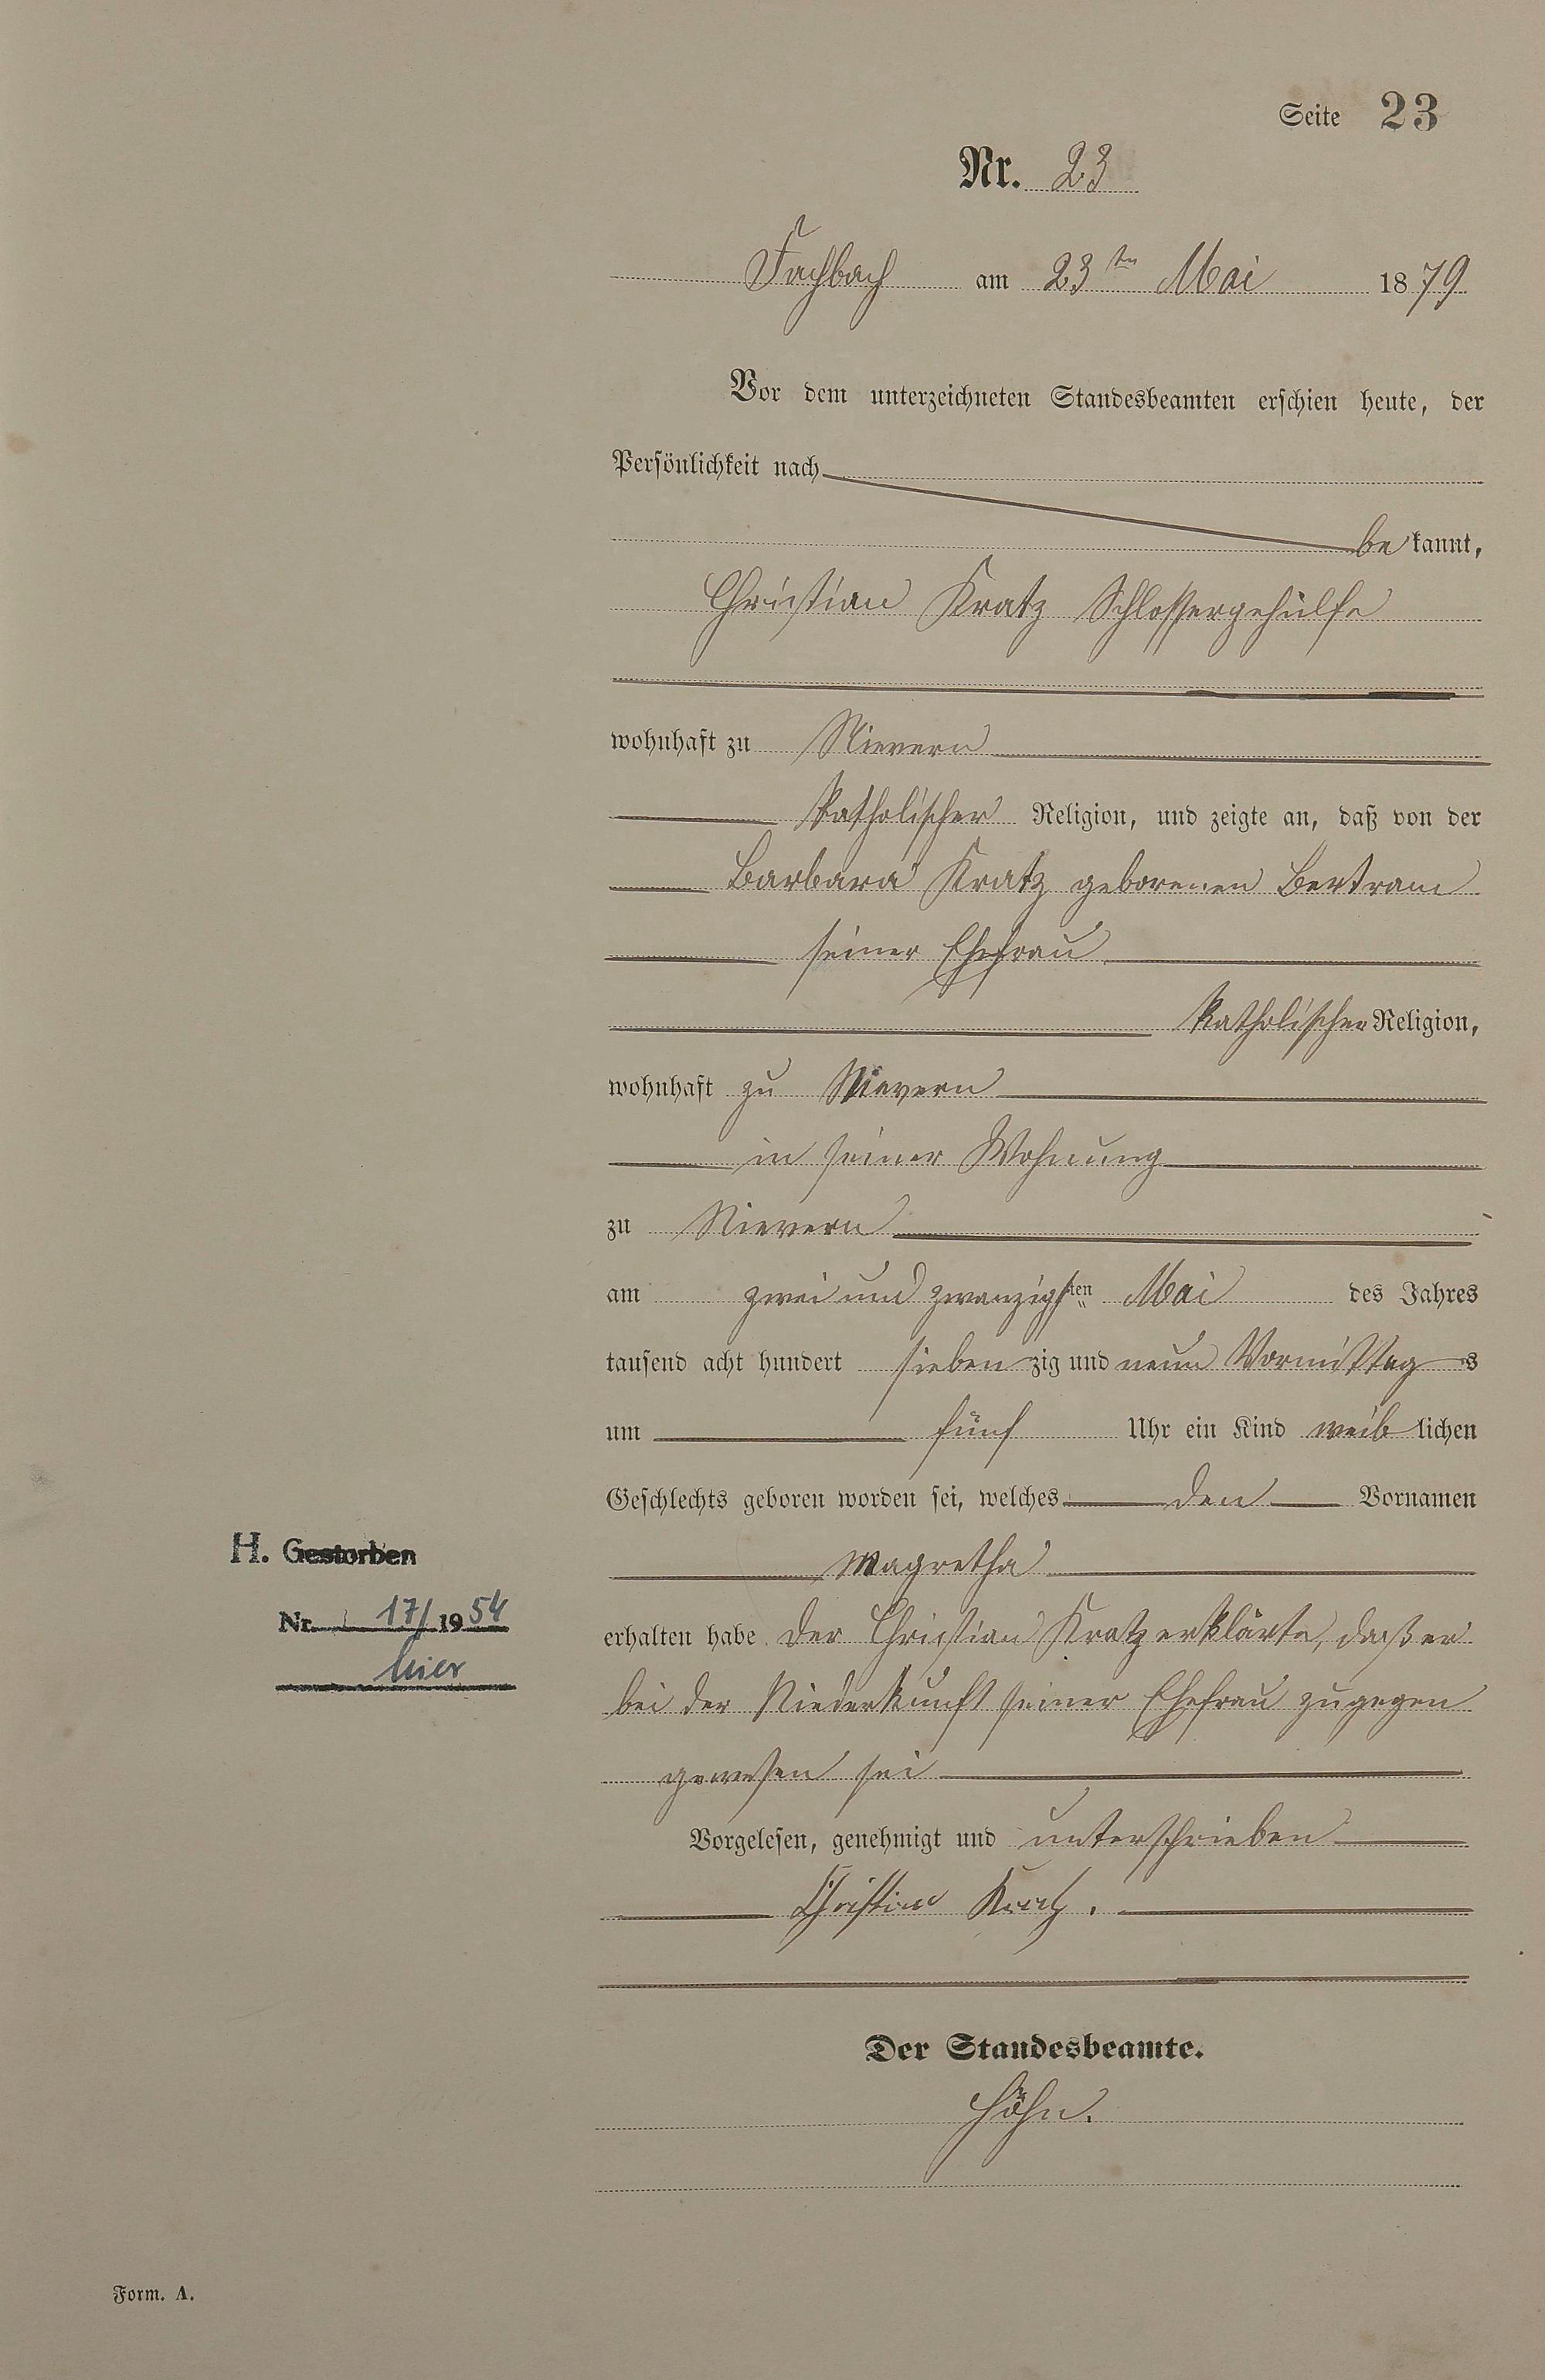 Seite 23
Nr. 23
Fachbach am 23ten Mai 1879
Vor dem unterzeichneten Standesbeamten erschien heute, der
Persönlichkeit nach
bekannt,
Christian Kratz Schlossergehülfe
wohnhaft zu Nievern
katholischer Religion, und zeigte an, daß von der
Barbara Kratz geborenen Bertram
seiner Ehefrau
katholischer Religion,
wohnhaft zu Nievern
in seiner Wohnung
zu Nievern
am zwei und zwanzigsten Mai des Jahres
tausend acht hundert siebenzig und neun Vormittags
um fünf Uhr ein Kind weiblichen
Geschlechts geboren worden sei, welches den Vornamen
Magretha
erhalten habe. Der Christian Kratz erklärte, daß er
bei der Niederkunft seiner Ehefrau zugegen
gewesen sei
Vorgelesen, genehmigt und unterschrieben
Christian Kratz.
Der Standesbeamte.
Höhn.
H. Gestorben
Nr. 17/1954
hier
Form. A.